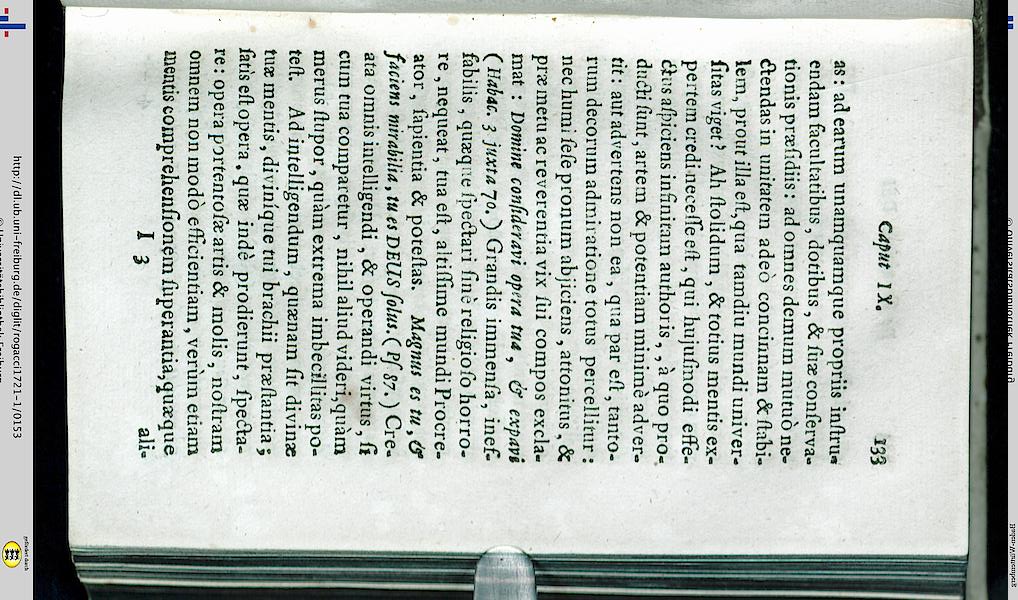 Caput IX. 133
as: ad earum unamquamque propriis instru-
endam facultatibus, dotibus, & suæ conserva-
tionis præsidiis: ad omnes demum mutuò ne-
ctendas in unitatem adeò concinnam & stabi-
lem, prout illa est, qua tamdiu mundi univer-
sitas viget? Ah stolidum, & totius mentis ex-
pertem credi necesse est, qui hujusmodi effe-
ctus aspiciens infinitam authoris, , à quo pro-
ducti sunt, artem & potentiam minimè adver-
tit: aut advertens non ea, qua par est, tanto-
rum decorum admiratione totus percellitur:
nec humi sese pronum abjiciens, attonitus, &
præ metu ac reverentia vix sui compos excla-
mat: Domine consideravi opera tua, & expavi
(Habac. 3 juxta 70.) Grandis immensa, inef-
fabilis, quæque spectari sinè religioso horro-
re, nequeat, tua est, altissime mundi Procre-
ator, sapientia & potestas. Magnus es tu, &
faciens mirabilia, tu es DEUS solus, (Ps 87.) Cre-
ata omnis intelligendi, & operandi virtus, si
cum tua comparetur, nihil aliud videri, quàm
merus stupor, quàm extrema imbecillitas po-
test. Ad intelligendum, quænam sit divinæ
tuæ mentis, divinique tui brachii præstantia;
satis est opera, quæ indè prodierunt, specta-
re: opera portentosæ artis & molis, nostram
omnem non modò efficientiam, verùm etiam
mentis comprehensionem superantia, quæque
I 3 ali-
http://dl.ub.uni-freiburg.de/diglit/rogacci1721-1/0153
© Universitätsbibliothek Freiburg
gefördert durch